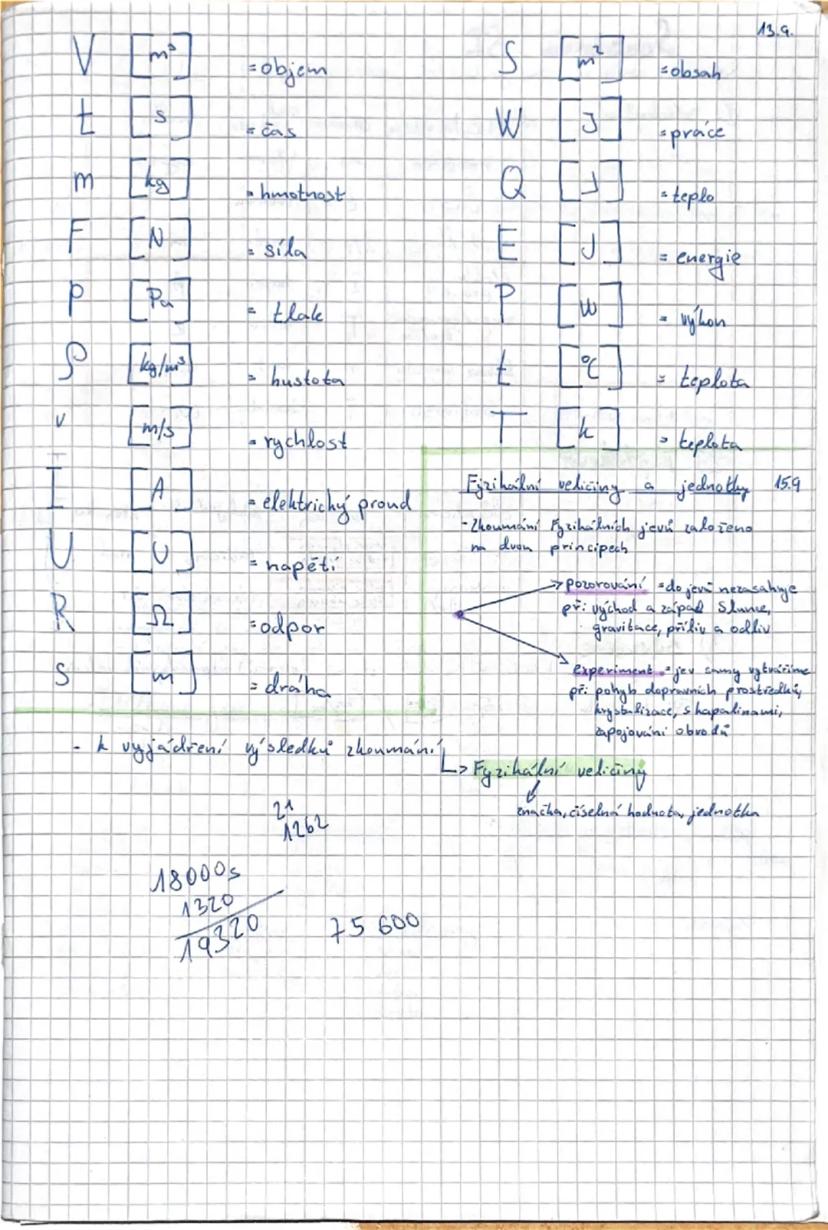 13.9.
V [m³] = objem
t [s] = čas
m [kg] = hmotnost
F [N] = síla
p [Pa] = tlak
ρ [kg/m³] = hustota
v [m/s] = rychlost
I [A] = elektrický proud
U [U] = napětí
R [Ω] = odpor
s [m] = dráha
S [m²] = obsah
W [J] = práce
Q [J] = teplo
E [J] = energie
P [W] = výkon
t [°C] = teplota
T [k] = teplota
Fyzikální veličiny a jednotky 15.9
- Zkoumání Fyzikálních jevů založeno
na dvou principech
pozorování = do jevů nezasahuje
př: východ a západ Slunce,
gravitace, příliv a odliv
experiment = jev samy vytváříme
př: pohyb dopravních prostředků,
krystalizace, s kapalinami,
zapojování obvodů
- k vyjádření výsledků zkoumání
Fyzikální veličiny
značka, číselná hodnota, jednotka
21
1262
18000s
1320
19320
75 600